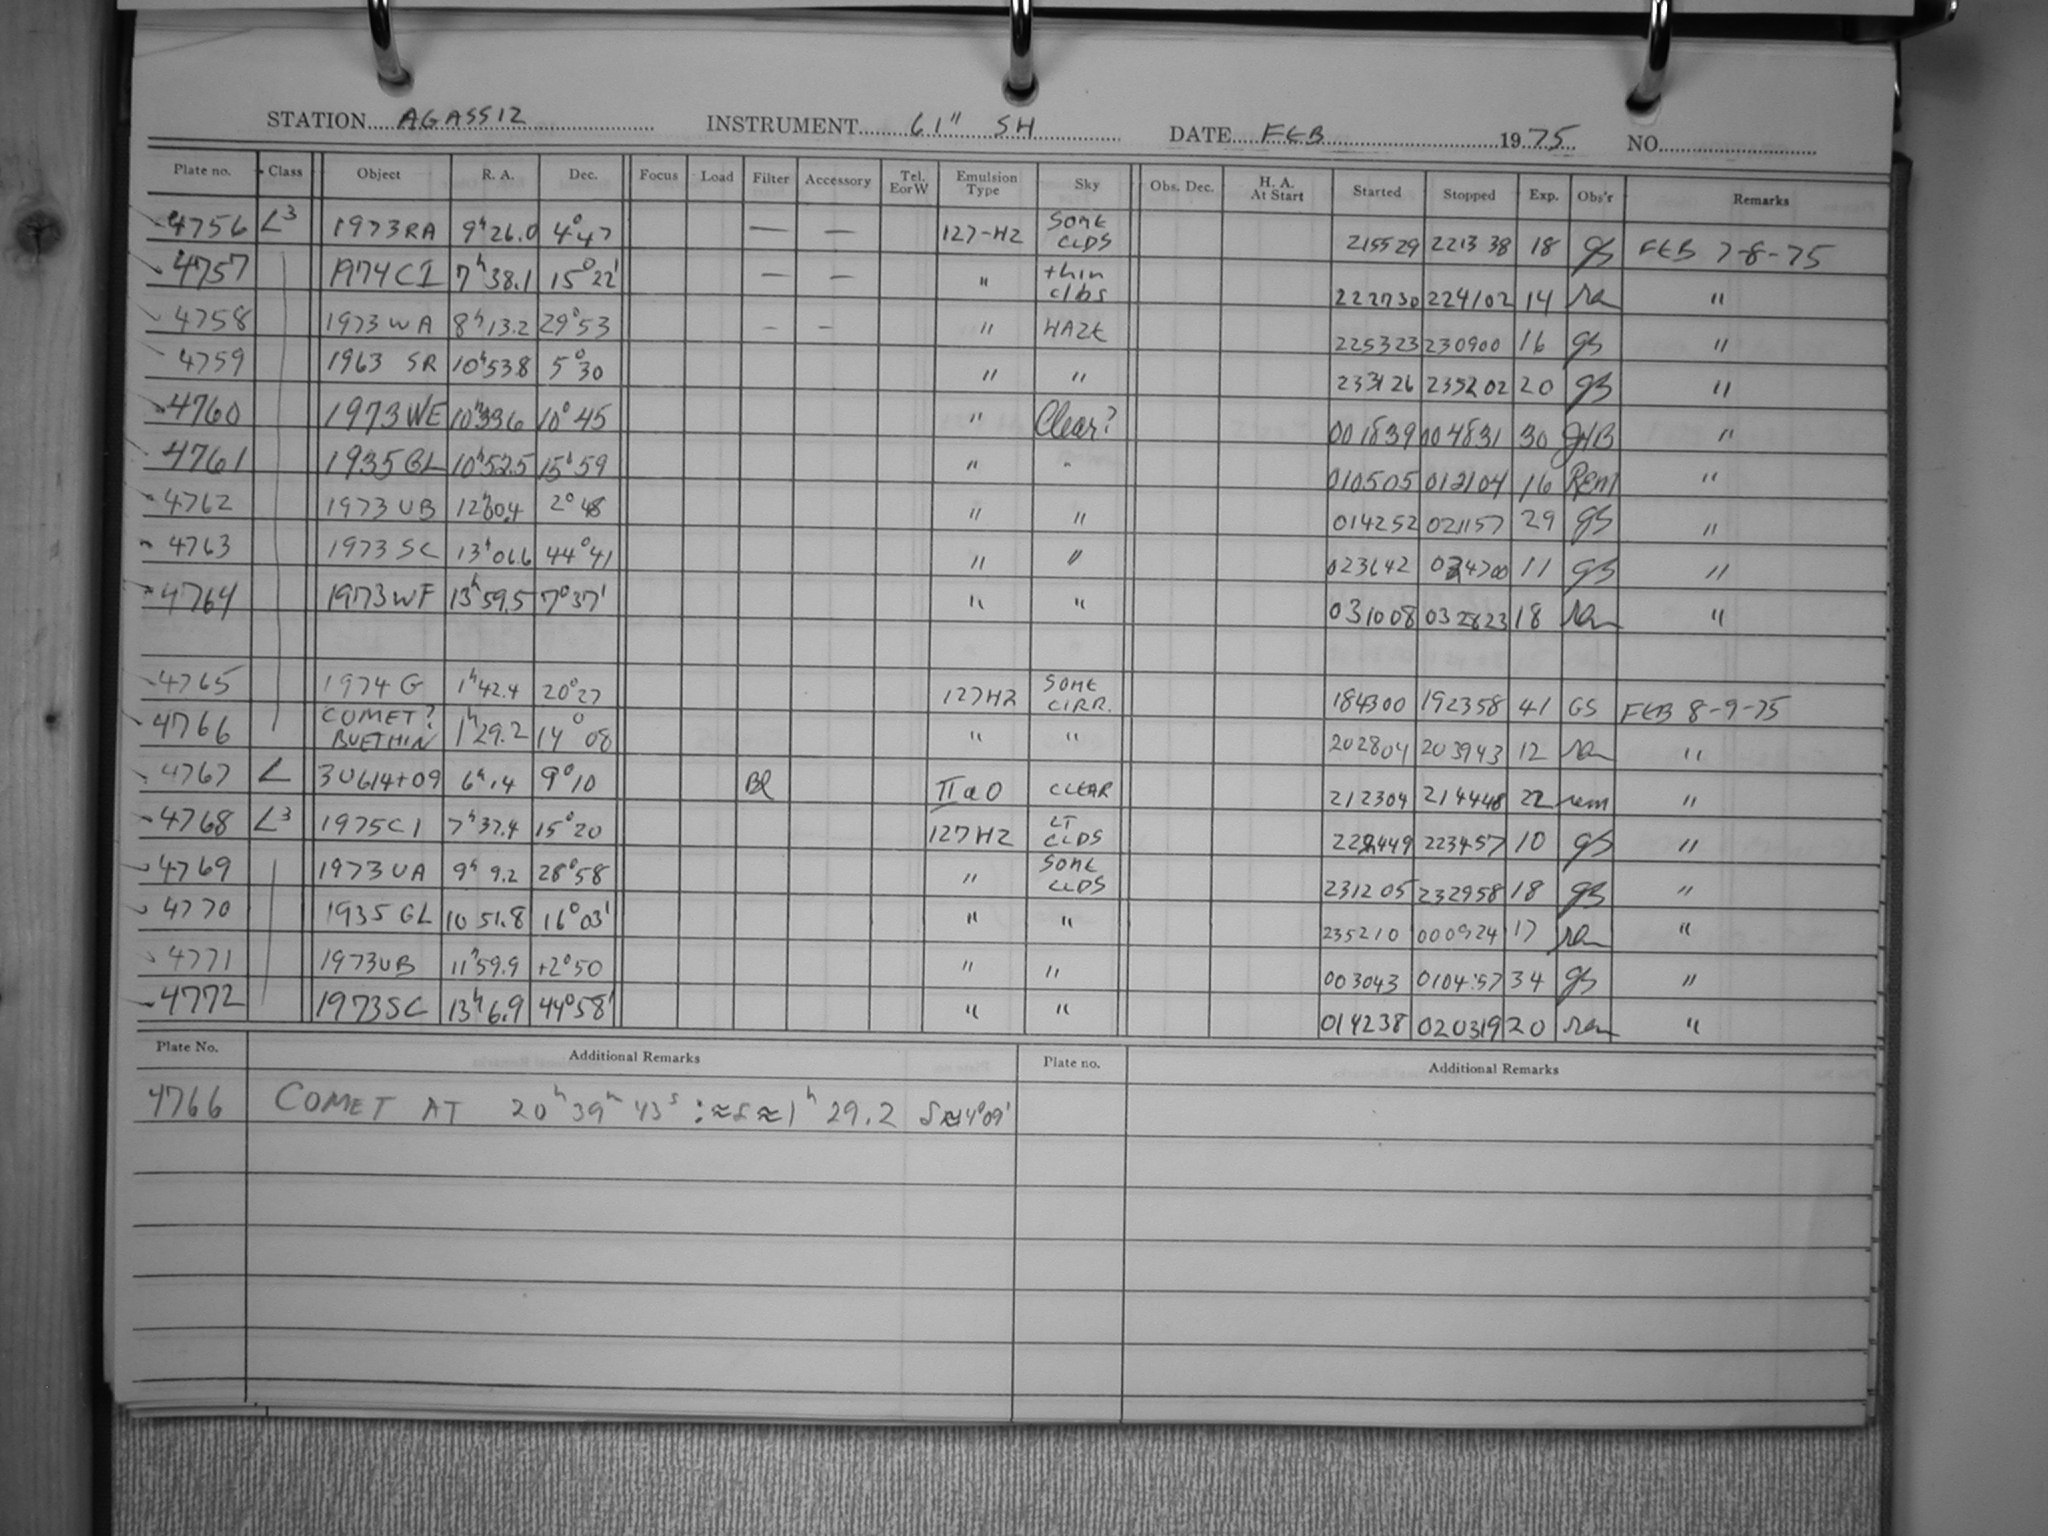 STATION AGASSIZ INSTRUMENT 61" SH DATE FEB 1975 NO.
Plate no. Class Object R. A. Dec. Focus Load Filter Accessory Tel. E or W Emulsion Type Sky Obs. Dec. H. A. At Start Started Stopped Exp. Obs'r Remarks
4756 L3 1973RA 9h26.0 4°47 — — 127-H2 SOME CLDS 215529 221338 18 gs FEB 7-8-75
4757 1974CI 7h38.1 15°22' — — " thin clds 222730 224102 14 rem "
4758 1973WA 8h13.2 29°53 — — " HAZE 225323 230900 16 gs "
4759 1963 SR 10h53.8 5°30 " " 233126 235202 20 gs "
4760 1973WE 10h33.6 10°45 " Clear? 001839 004831 30 "
4761 1935GL 10h52.5 15°59 " " 010505 012104 16 Rem "
4762 1973UB 12h00.4 2°48 " " 014252 021157 29 gs "
4763 1973SC 13h06.6 44°41 " " 023642 024700 11 gs "
4764 1973WF 13h59.5 7°37' " " 031008 032823 18 rem "
4765 1974G 1h42.4 20°27 127H2 SOME CIRR. 184300 192358 41 GS FEB 8-9-75
4766 COMET? BOETHIN 1h29.2 14°08 " " 202804 203943 12 rem "
4767 L 3U614+09 6h14 9°10 Bl IIaO CLEAR 212304 214448 22 rem "
4768 L3 1975CI 7h37.4 15°20 127H2 LT CLDS 222449 223457 10 gs "
4769 1973UA 9h 9.2 28°58 " SOME CLDS 231205 232958 18 gs "
4770 1935GL 10 51.8 16°03' " " 235210 000924 17 rem "
4771 1973UB 11h59.9 +2°50 " " 003043 010457 34 gs "
4772 1973SC 13h6.9 44°58' " " 014238 020319 20 rem "
Plate No. Additional Remarks Plate no. Additional Remarks
4766 COMET AT 20h 39m 43s : ≈ α ≈ 1h 29.2 δ≈14°09'